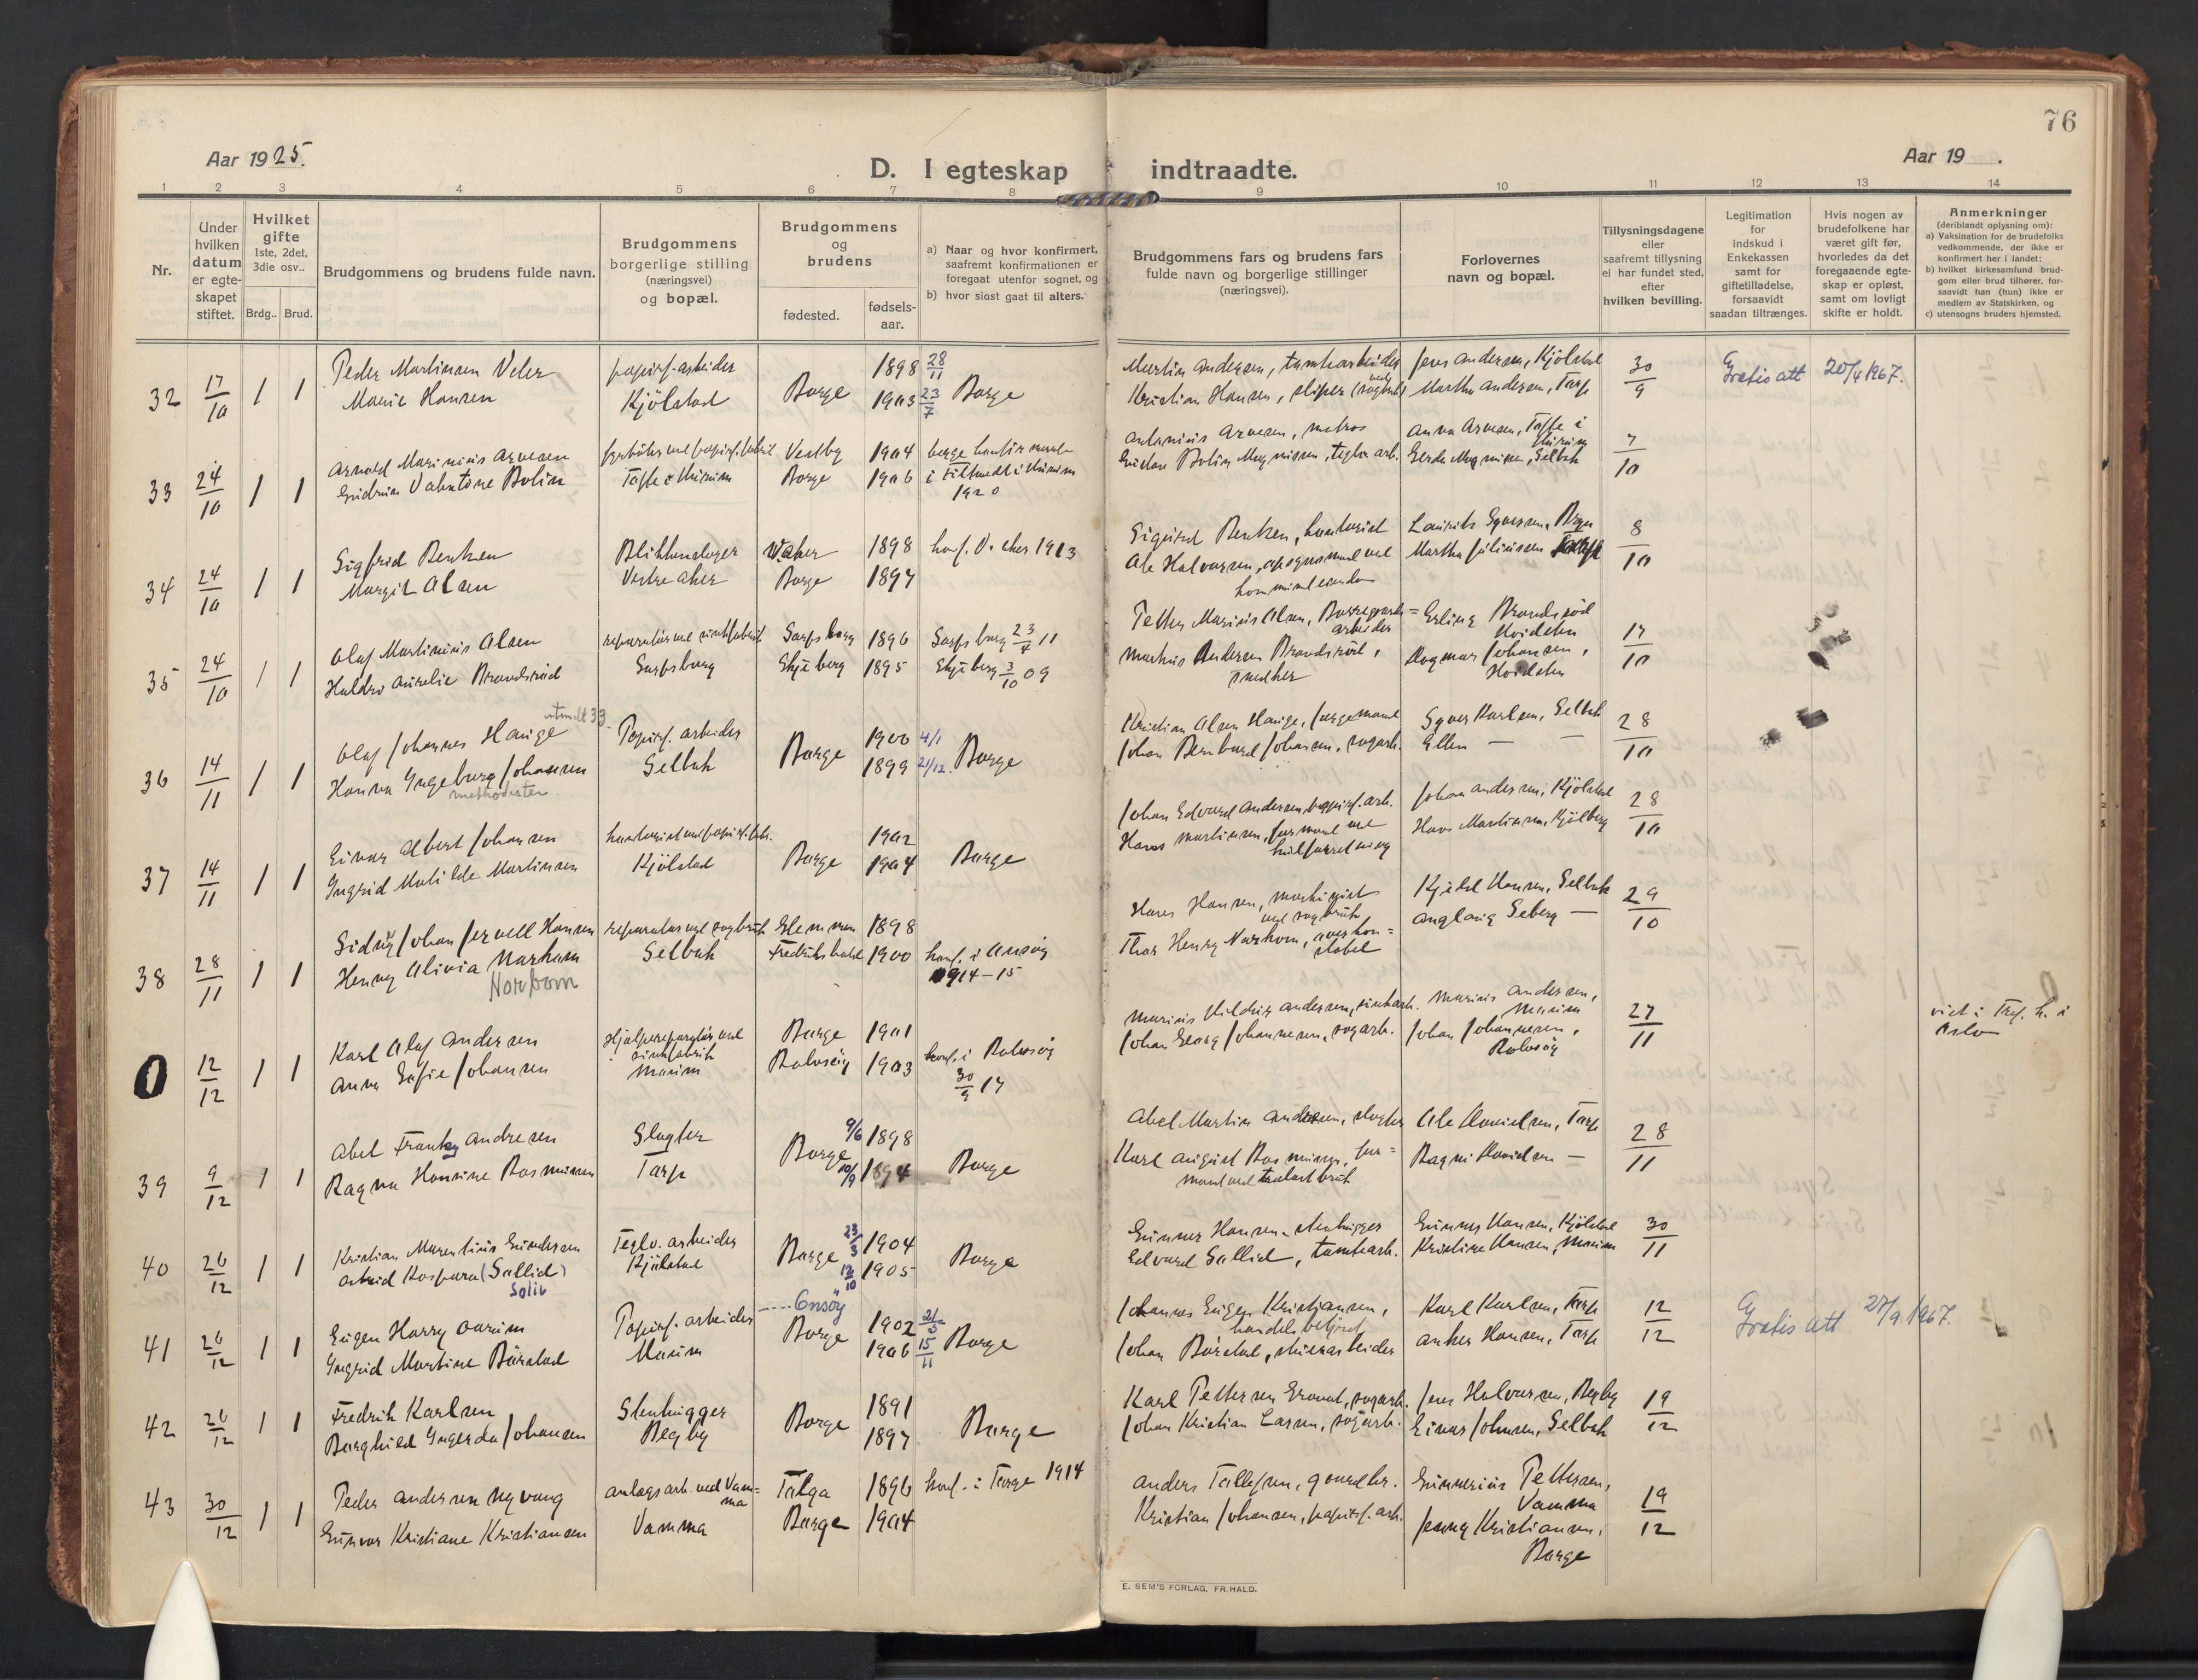 76
Aar 1925.
D. I egteskap indtraadte.
Aar 19 .
1 2 3 4 5 6 7 8 9 10 11 12 13 14
Nr.
Under hvilken datum er egteskapet stiftet.
Hvilket gifte 1ste, 2det, 3die osv..
Brdg.. Brud.
Brudgommens og brudens fulde navn.
Brudgommens borgerlige stilling (næringsvei) og bopæl.
Brudgommens og brudens
fødested.
fødsels-aar.
a) Naar og hvor konfirmert, saafremt konfirmationen er foregaat utenfor sognet, og
b) hvor sidst gaat til alters.
Brudgommens fars og brudens fars fulde navn og borgerlige stillinger (næringsvei).
Forlovernes navn og bopæl.
Tillysningsdagene eller saafremt tillysning ei har fundet sted, efter hvilken bevilling.
Legitimation for indskud i Enkekassen samt for giftetilladelse, forsaavidt saadan tiltrænges.
Hvis nogen av brudefolkene har været gift før, hvorledes da det foregaaende egteskap er opløst, samt om lovligt skifte er holdt.
Anmerkninger (deriblandt oplysning om):
a) Vaksination for de brudefolks vedkommende, der ikke er konfirmert her i landet;
b) hvilket kirkesamfund brudgom eller brud tilhører, forsaavidt han (hun) ikke er medlem av Statskirken, og
c) utensogns bruders hjemsted.
32 17/10 1 1 Peder Martinsen Veler papirf.arbeider 1898 28/11 Martin Andersen, tomtearbeider Jens Andersen, Kjölstad 30/9 Gratis att 20/4 1967.
Marie Hansen Kjölstad Borge 1903 23/7 Borge Kristian Hansen, sliper Martha Andersen, Torp
33 24/10 1 1 Arnold Marinius Arvesen Vestby 1904 Antonius Arvesen, matros Anna Arvesen, 7/10
Gudrun Valentine Bolin Borge 1906 Gustav Bolin Magnissen, teglv. arb. Gerda Magnissen, Selbak
1920
34 24/10 1 1 Sigfrid Bentzen Blikkenslager V. Aker 1898 konf. V. Aker 1913 Sigurd Bentzen, kontorist Laurits Syversen, 8/10
Margit Olsen Vestre Aker Borge 1897 Ole Halvorsen, Martha Juliussen
35 24/10 1 1 Olaf Martinius Olsen reparatör ved sinkfabrik Sarpsborg 1896 Sarpsborg 23/4 11 Petter Marius Olsen, Borregaards- Erling Brandsröd 17/10
arbeider Hvidsten
Huldra Aurelie Brandsröd Sarpsborg Skjeberg 1895 Skjeberg 3/10 09 Markus Andersen Brandsröd, Dagmar Johansen,
snedker Hvidsten
36 14/11 1 1 Olaf Johannes Hauge utmeldt 33 Papirf. arbeider 1900 4/1 Kristian Olsen Hauge, fergemand Syver Karlsen, Selbak 28/10
Hanna Ingeborg Johansen Selbak Borge 1899 21/12. Borge Johan Bernhard Johansen, sagarb. Ellen — —
methodisten
37 14/11 1 1 Einar Albert Johansen kontorist ved papirf.fabr. 1902 Johan Edvard Andersen, papirf. arb. Johan Andersen, Kjölstad 28/10
Ingrid Matilde Martinsen Kjölstad Borge 1904 Borge Hans Martinsen, formand ved Hans Martinsen, Kjölberg
kulforretning
38 28/11 1 1 Sidny Johan Jervell Hansen reparatör ved sagbruk Glemmen 1898 Hans Hansen, maskinist Kjetil Hansen, Selbak 29/10
ved sagbruk
Henny Olivia Norhom Selbak Fredrikshald 1900 konf. i Onsöy Thor Henry Norhom, overkon- Anglaug Seberg —
Norbom 1914-15 stabel
0 12/12 1 1 Karl Olaf Andersen Hjælpereparatör ved Borge 1901 Marius Hildur Andersen, sinkarb. Marius Andersen, 27/11 viet i Tref. k. i
sinkfabrik Moum Oslo
Anna Sofie Johansen Moum Rolvsöy 1903 konf. i Rolvsöy Johan Georg Johannesen, sagarb. Johan Johannesen,
30/9 17 Rolvsöy
39 9/12 1 1 Abel Franky Andresen Slagter 9/6 1898 Abel Martin Andresen, slagter Ole Danielsen, Torp 28/11
Ragna Hansine Rasmussen Torp Borge 10/9 1894 Borge Karl August Rasmussen, for- Ragni Danielsen —
mand ved trælastbruk
40 26/12 1 1 Kristian Marentius Gundersen Teglv. arbeider 23/3 1904 Gunnar Hansen, stenhugger Gunnar Hansen, Kjölstad 30/11
Astrid Kaspara (Sollid) Kjölstad Borge 12/10 1905 Borge Edvard Sollid, tomtearb. Kristine Hansen, Moum
Soliv
41 26/12 1 1 Eugen Harry Aarum Papirf. arbeider ---- Onsöy 1902 21/5 Johannes Eugen Kristiansen, Karl Karlsen, Torp 12/12 Gratis att 27/9 1967.
handelsbetjent
Ingrid Martine Börstad Moum Borge 1906 15/11 Borge Johan Börstad, skiearbeider Anker Hansen, Torp
42 26/12 1 1 Fredrik Karlsen Stenhugger 1891 Karl Pettersen Grönet, sagarb. Jens Halvorsen, Begby 19/12
Borghild Ingerda Johansen Begby Borge 1897 Borge Johan Kristian Larsen, sagarb. Einar Johnsen, Selbak
43 30/12 1 1 Peder Andersen Nyvang anlægsarb. ved Vam- Tolga 1896 konf. i 1914 Anders Tollefsen, gaardbr. Gunnerius Pettersen, 19/12
ma Vamma
Gunvor Kristiane Kristiansen Vamma Borge 1904 Kristian Johansen, papirf. arb. Jenny Kristiansen,
Borge
E. SEM'S FORLAG, FR.HALD.